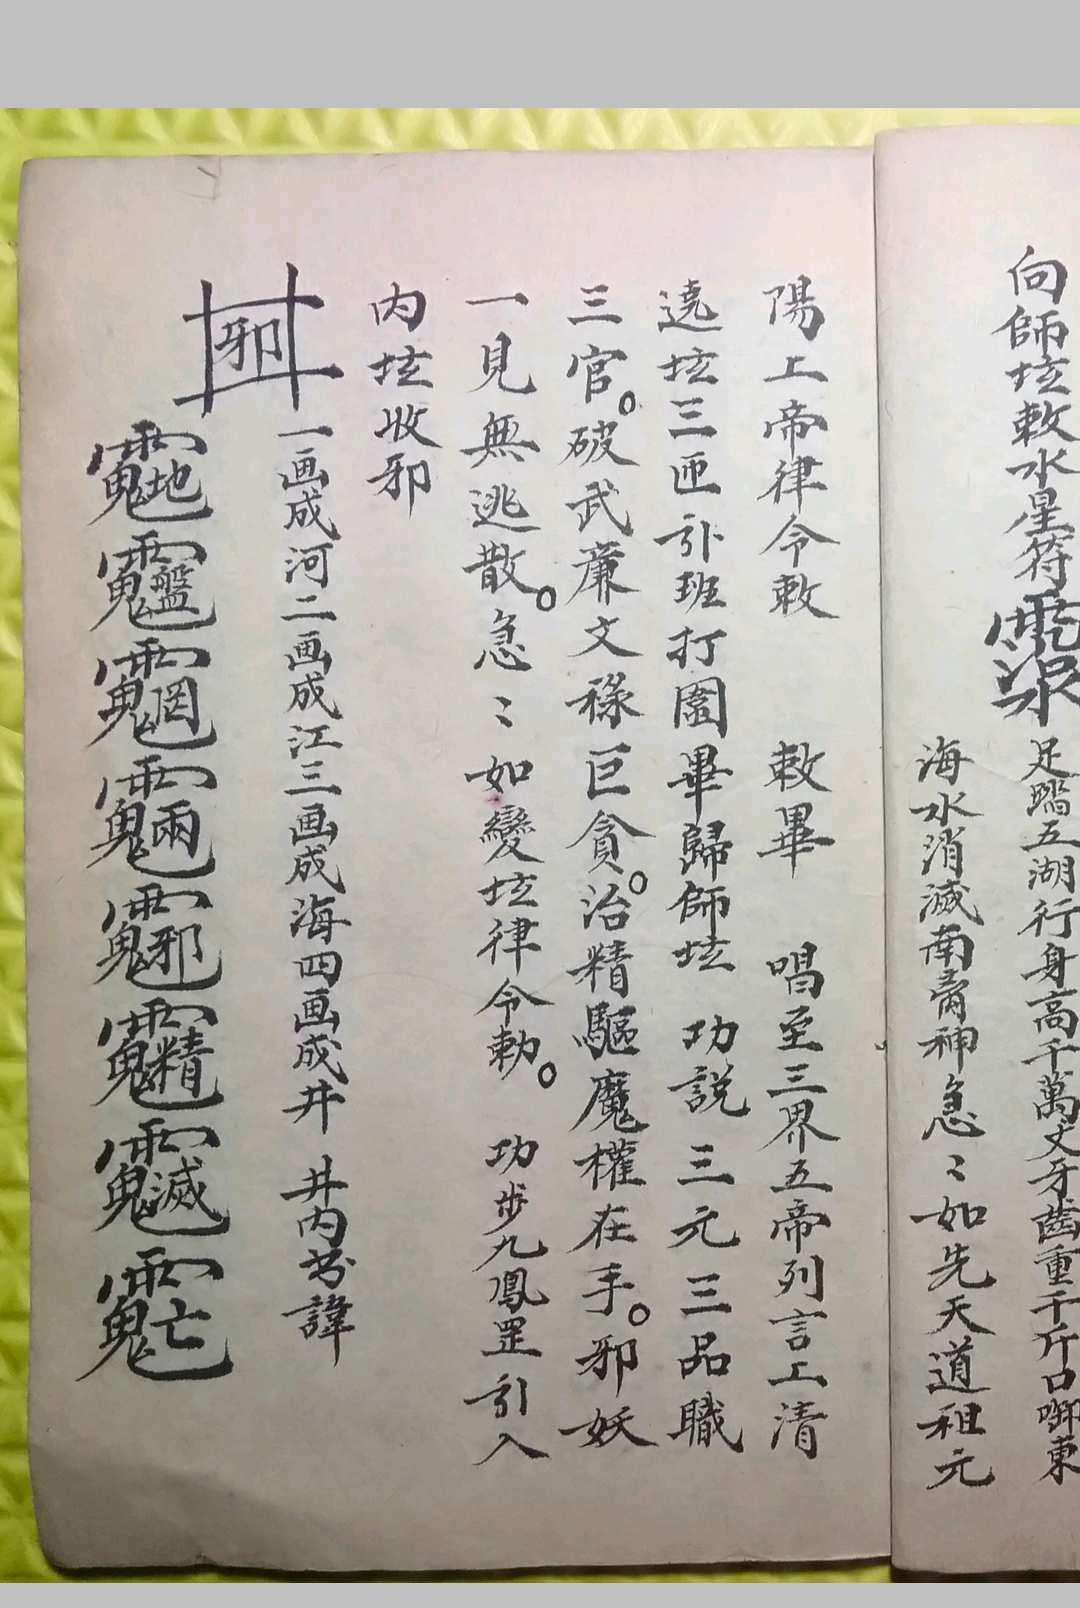 向師坛敕水星符
足踏五湖行身高千萬丈牙齒重千斤口啣東
海水消滅南膏神急〻如先天道祖元
陽上帝律令敕 敕畢 唱至三界五帝列言上清
遶坛三匝引班打圍畢歸師坛 功説三元三品職
三官。破武廉文祿巨貪。治精驅魔權在手。邪妖
一見無逃散。急〻如變坛律令勅。 功步九鳳罡引入
内坛收邪
邪 一画成河二画成江三画成海四画成井 井内书諱